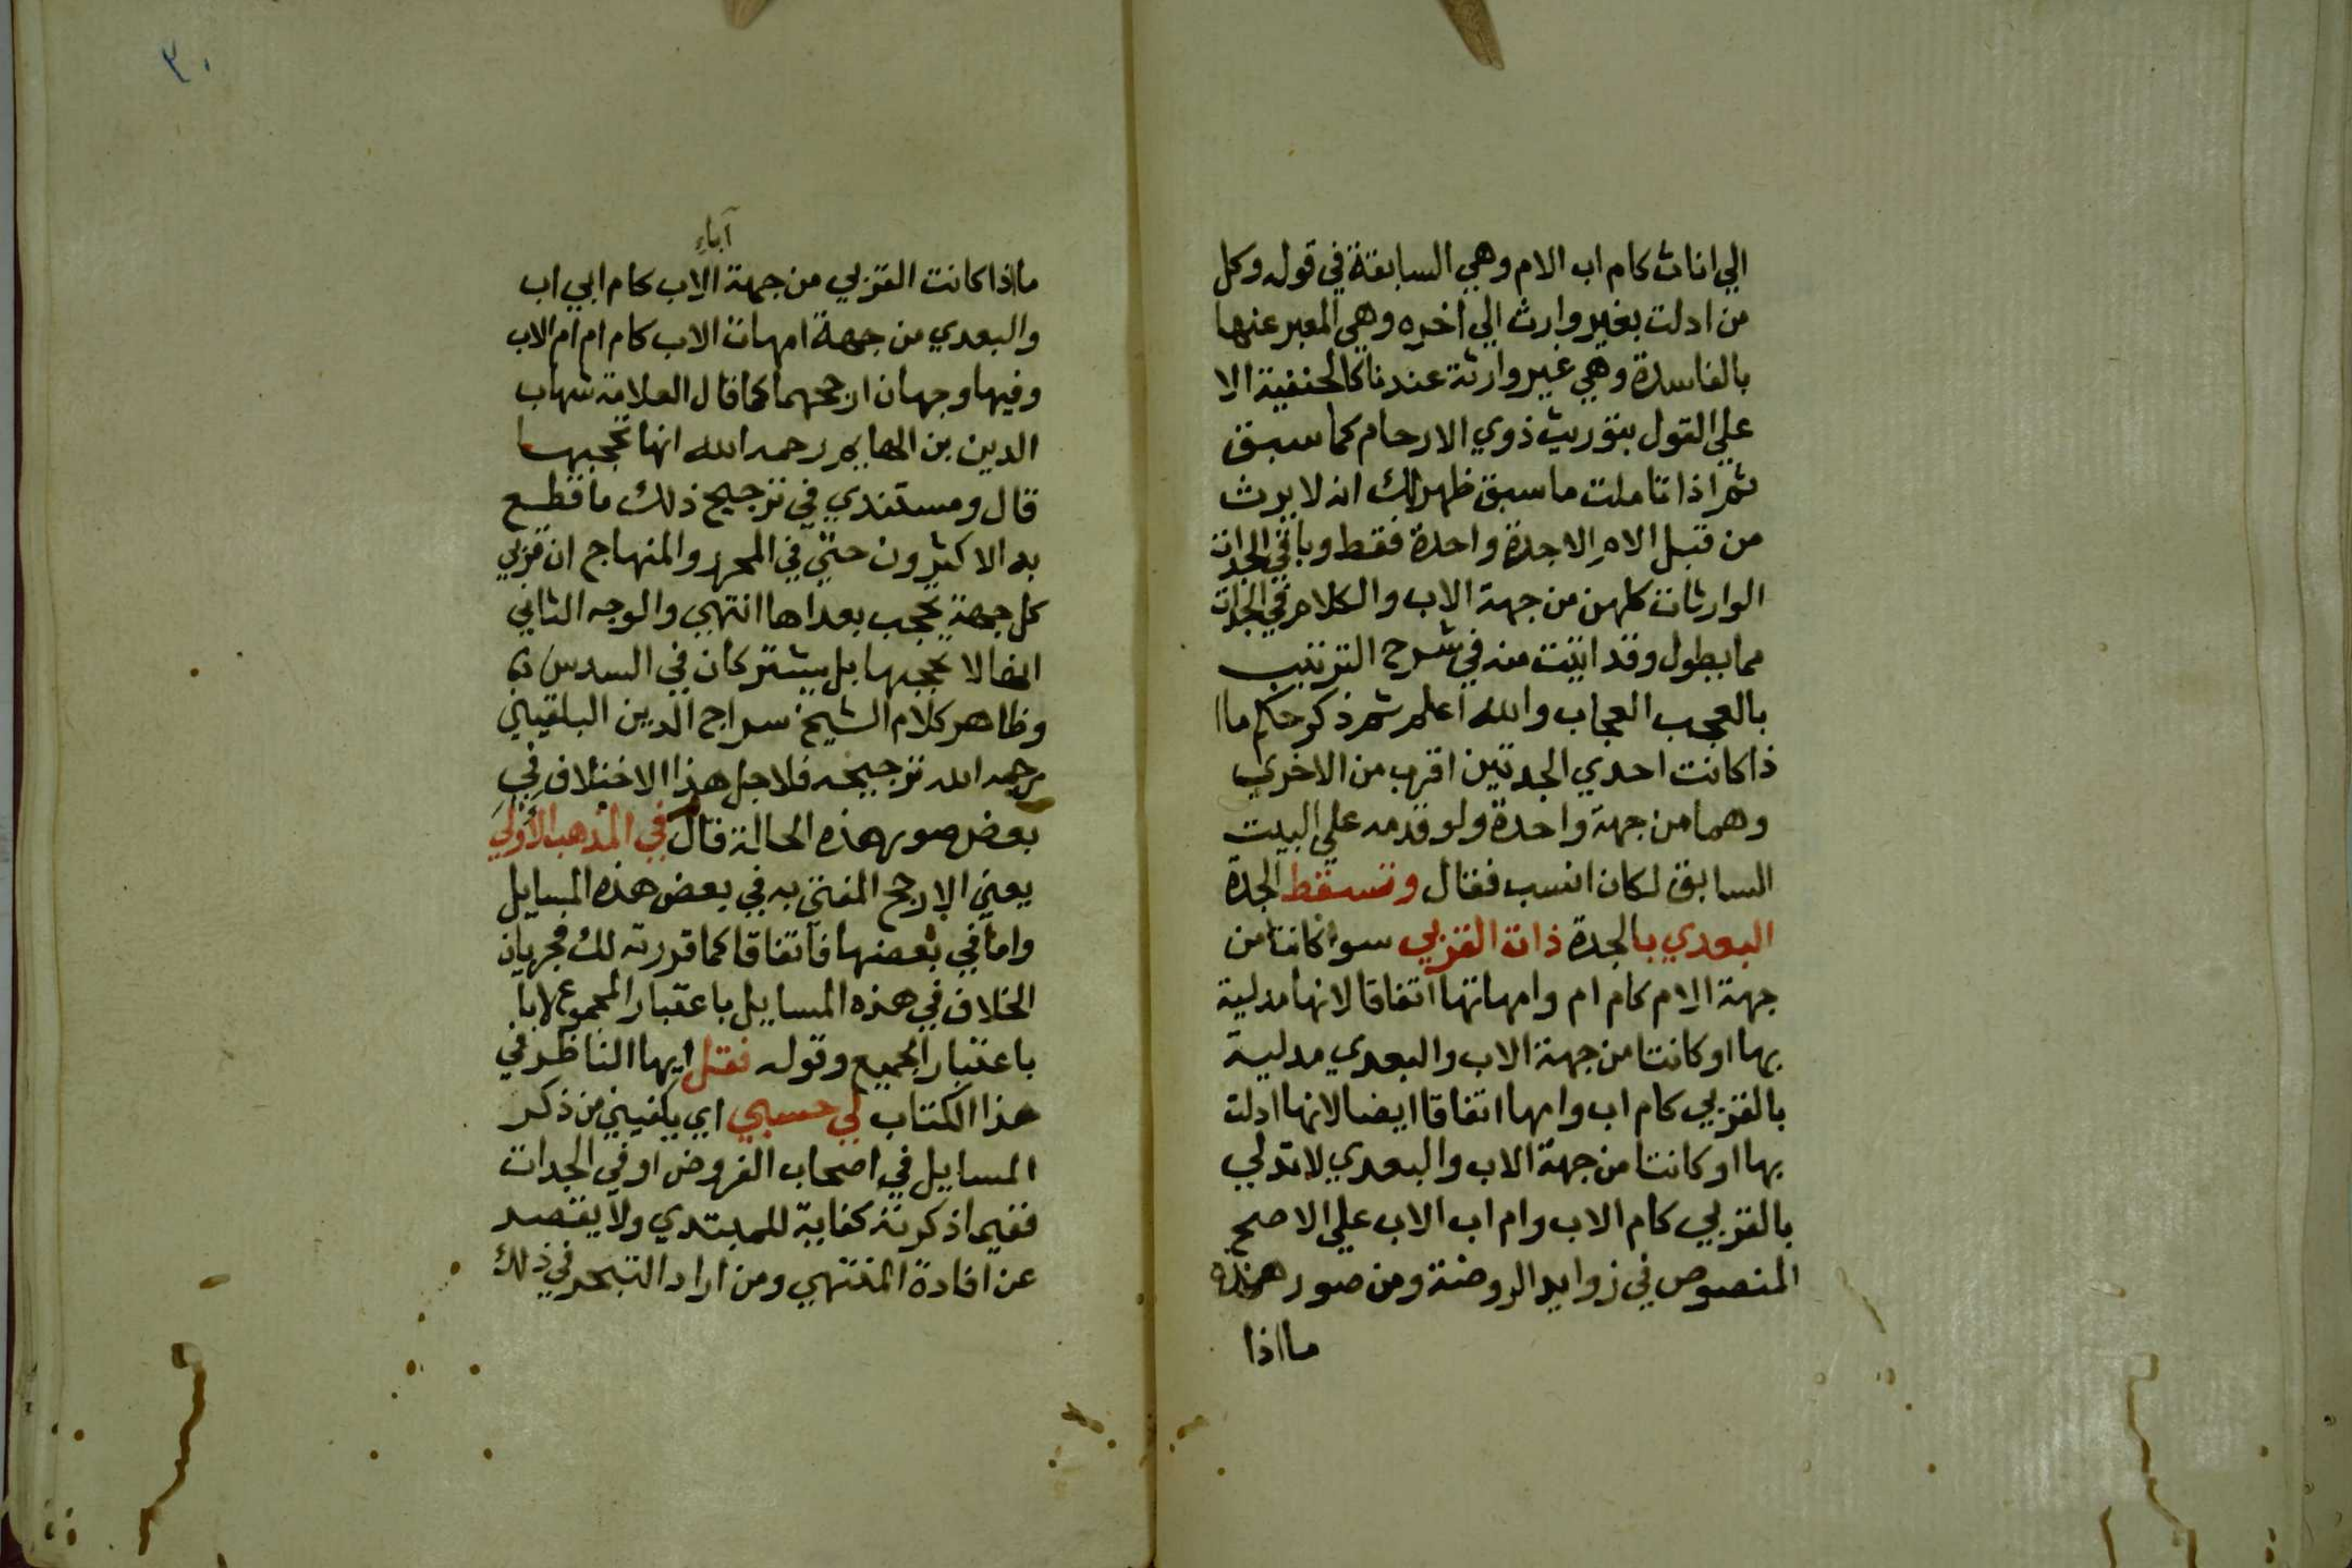 الي اناث كام اب الام وهي السابقة في قوله وكل
من ادلت بغير وارث الي اخره وهي المعبر عنها
بالفاسدة وهي غير وارثة عندنا كالحنفية الا
علي القول بتوريث ذوي الارحام كما سبق
ثم اذا تاملت ما سبق ظهر لك انه لا يرث
من قبل الام الا جدة واحدة فقط وباقي الجدات
الوارثات كلهن من جهة الاب والكلام في الجدات
مما يطول وقد اتيت منه في شرح الترتيب
بالعجب العجاب والله اعلم ثم ذكر حكم ما ا
ذا كانت احدي الجدتين اقرب من الاخري
وهما من جهة واحدة ولو قدمه علي البيت
السابق لكان انسب فقال وتسقط الجدة
البعدي بالجدة ذات القربي سوا كانتا من
جهة الام كام ام وامهاتها اتفاقا لانها مدلية
بها او كانتا من جهة الاب والبعدي مدلية
بالقربي كام اب وامها اتفاقا ايضا لانها ادلت
بها او كانتا من جهة الاب والبعدي لا تدلي
بالقربي كام الاب وام اب الاب علي الاصح
المنصوص في زوايد الروضة ومن صور هذه
ما اذا
٣٠
آباء
ما اذا كانت القربي من جهة الاب كام ابي اب
والبعدي من جهة امهات الاب كام ام ام الاب
وفيها وجهان ارجحهما كما قال العلامة شهاب
الدين بن الهايم رحمه الله انها تحجبها
قال ومستندي في ترجيح ذلك ما قطع
به الاكثرون حتي في المحرر والمنهاج ان قربي
كل جهة تحجب بعداها انتهي والوجه الثاني
انها لا تحجبها بل يشتركان في السدس
وظاهر كلام الشيخ سراج الدين البلقيني
رحمه الله ترجيحه فلاجل هذا الاختلاف في
بعض صور هذه الحالة قال في المذهب الاولي
يعني الارجح المفتي به في بعض هذه المسايل
واما في بعضها فاتفاقا كما قررته لك فجريان
الخلاف في هذه المسايل باعتبار المجموع لا با
باعتبار الجميع وقوله فقل ايها الناظر في
هذا الكتاب لي حسبي اي يكفيني من ذكر
المسايل في اصحاب الفروض او في الجدات
ففيما ذكرته كفاية للمبتدي ولا يقصد
عن افادة المنتهي ومن اراد التبحر في ذلك